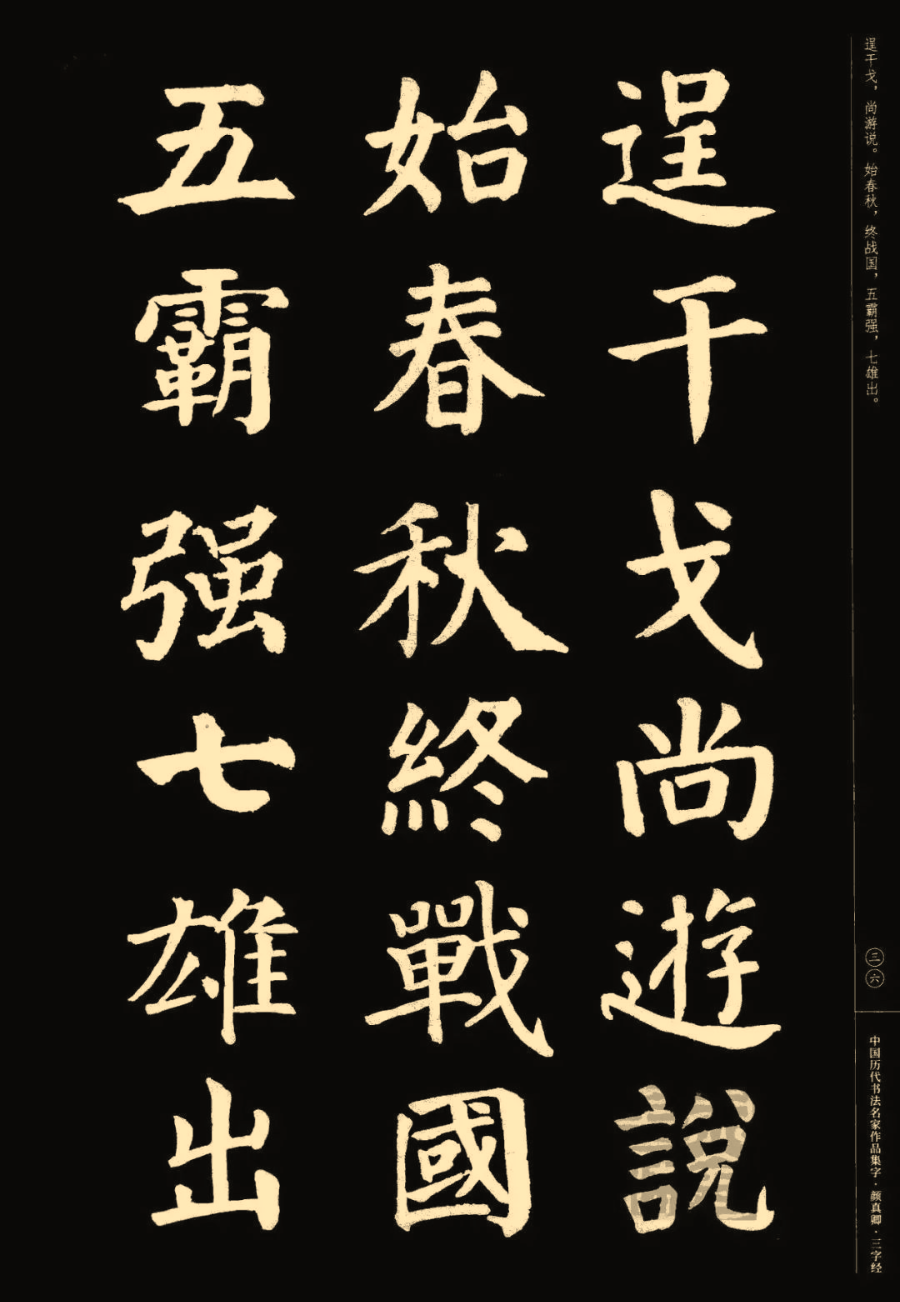 逞干戈，尚游说。始春秋，终战国，五霸强，七雄出。
逞干戈尚遊說
始春秋終戰國
五霸强七雄出
三六
中国历代书法名家作品集字·颜真卿·三字经